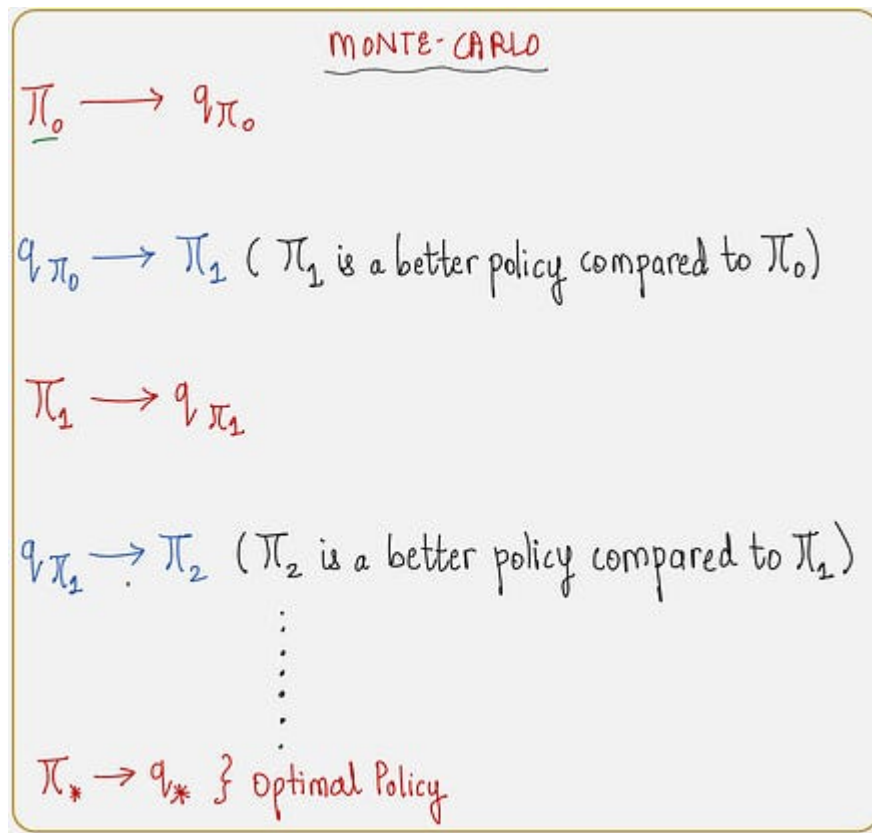 MONTE-CARLO
π₀ → q_π₀
q_π₀ → π₁ (π₁ is a better policy compared to π₀)
π₁ → q_π₁
q_π₁ → π₂ (π₂ is a better policy compared to π₁)
π* → q* } Optimal Policy